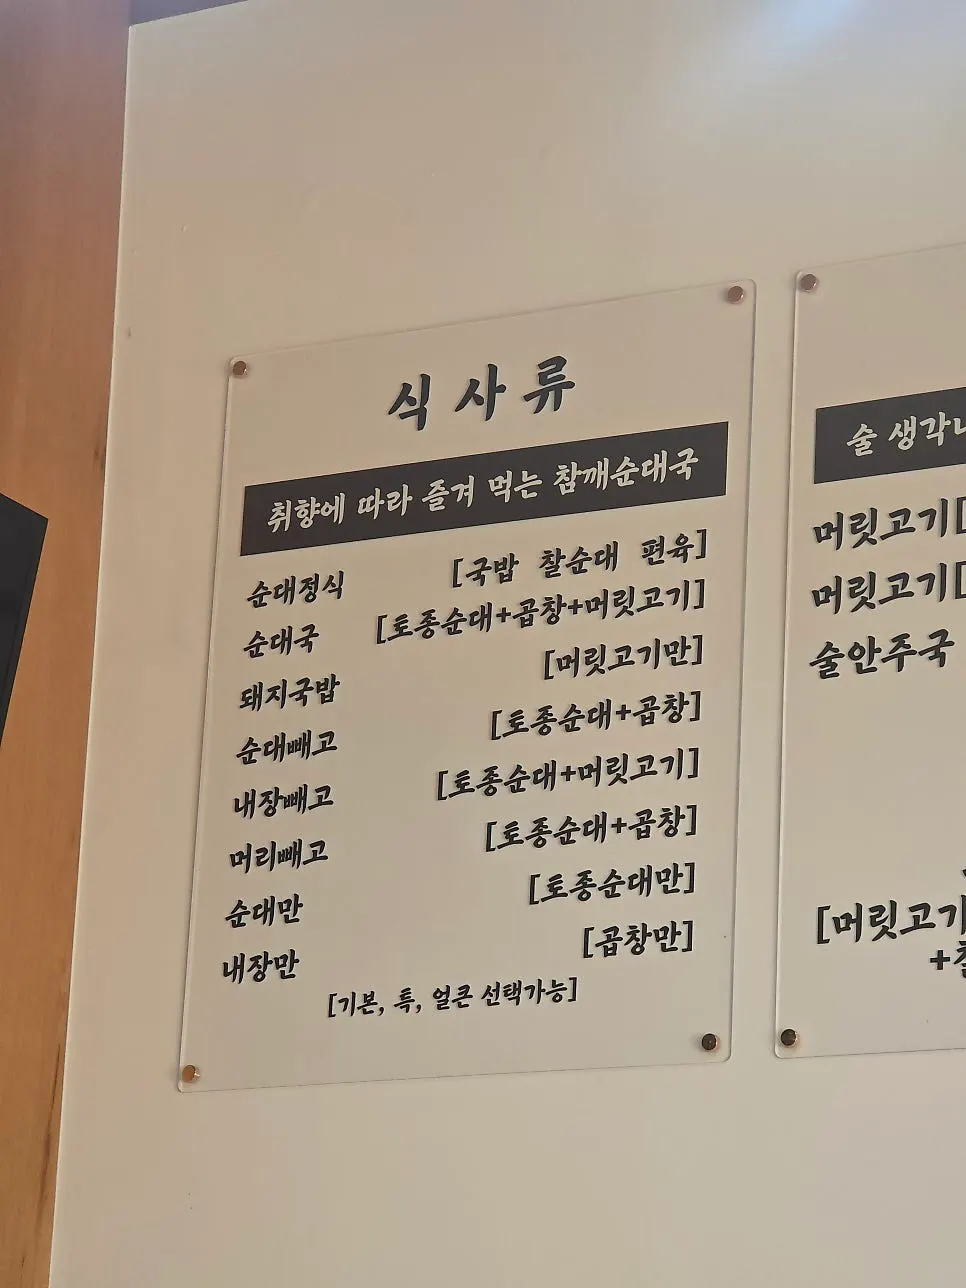 식사류
취향에 따라 즐겨 먹는 참깨순대국
순대정식 [국밥 찰순대 편육]
순대국 [토종순대+곱창+머릿고기]
돼지국밥 [머릿고기만]
순대빼고 [토종순대+곱창]
내장빼고 [토종순대+머릿고기]
머리빼고 [토종순대+곱창]
순대만 [토종순대만]
내장만 [곱창만]
[기본, 특, 얼큰 선택가능]
술 생각
머릿고기[
머릿고기[
술안주국
[머릿고기
+